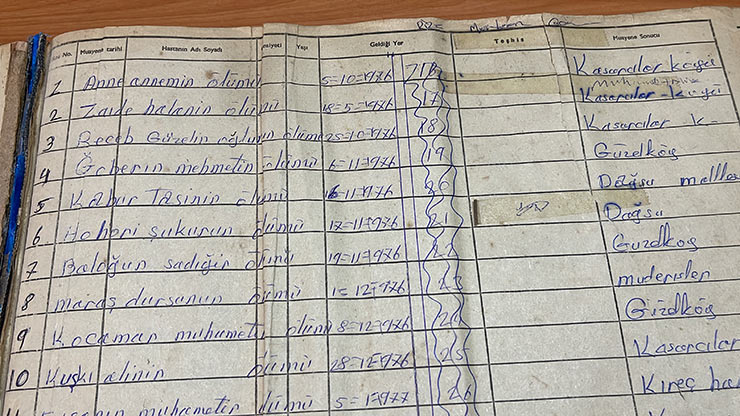 No. Muayene tarihi Hastanın Adı Soyadı Yaşı Geldiği Yer Teşhis Muayene Sonucu
1 Anneannemin ölümü 5=10=1976 Kasarcılar köyü
2 Zaide halanın ölümü 18=5=1976 17 Kasarcılar = köyü
3 Receb Güzelin oğlunun ölümü 25=10=1976 18 Kasarcılar k=
4 mehmetin ölümü 6=11=1976 19 Güzelköy
5 Kabur Taşinin ölümü 16=11=1976 Dağsu
6 şukurun ölümü 17=11=1976 21 Dağsu
7 sadığın ölümü 19=11=1976 22 Güzelköy
8 maraş dursunun ölümü 1=12=1976 23 muderisler
9 Kocaman muhametin ölümü 8=12=1976 24 Güzelköy
10 Kuşkı alinin ölümü 28=12=1976 25 Kasarcılar
muhametin ölümü 5=1=1977 26 Kireç